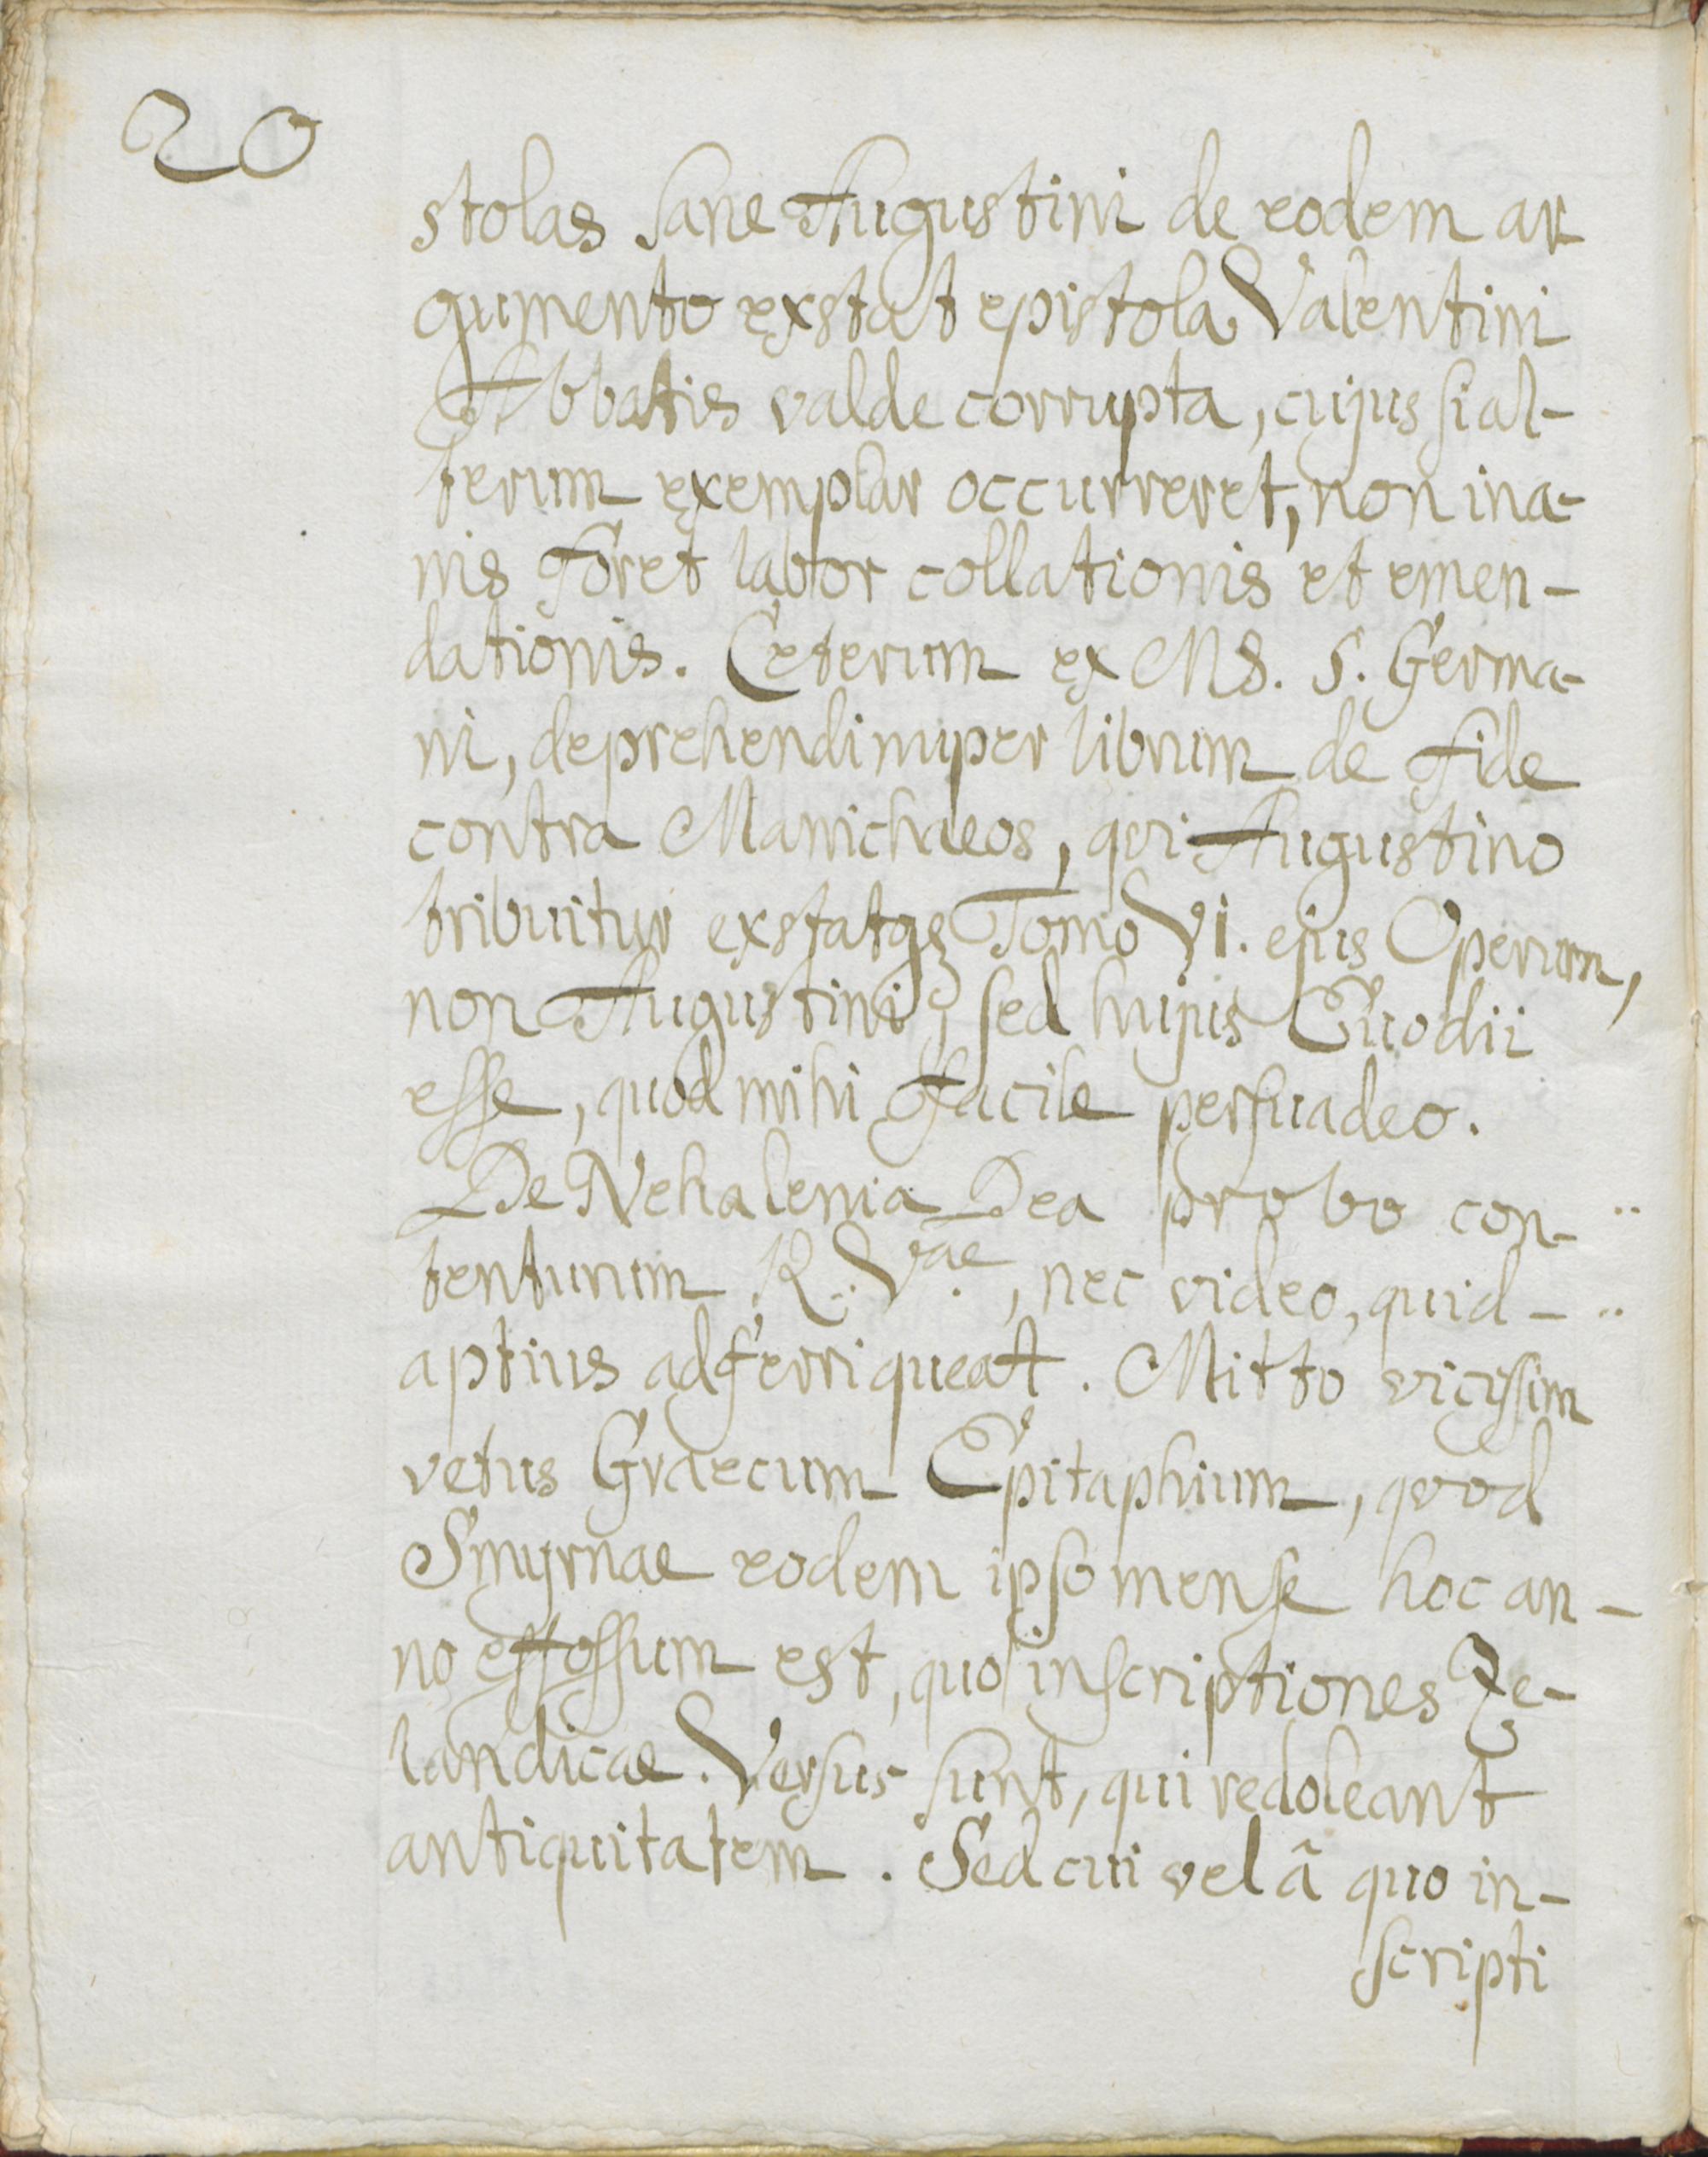 20
stolas sane Augustini de eodem ar
gumento exstat epistola Valentini
Abbatis valde corrupta, cujus si al-
terum exemplar occurreret, non ina-
nis foret labor collationis et emen-
dationis. Ceterum ex MS. S. Germa-
ni, deprehendi nuper librum de fide
contra Manichaeos, qvi Augustino
tribuitur exstatq; Tomo VI. ejus Operum,
non Augustini, sed hujus Euodii
esse, quod mihi facile persuadeo.
De Nehalenia Dea probo con-
tentunum R. V.ae, nec video, quid-
aptius adferri queat. Mitto vicissim
vetus Graecum Epitaphium, qvod
Smyrnae eodem ipso mense hoc an-
no effossum est, quo inscriptiones Ze-
landicae. Versus sunt, qui redoleant
antiquitatem. Sed cui vel â quo in-
scripti